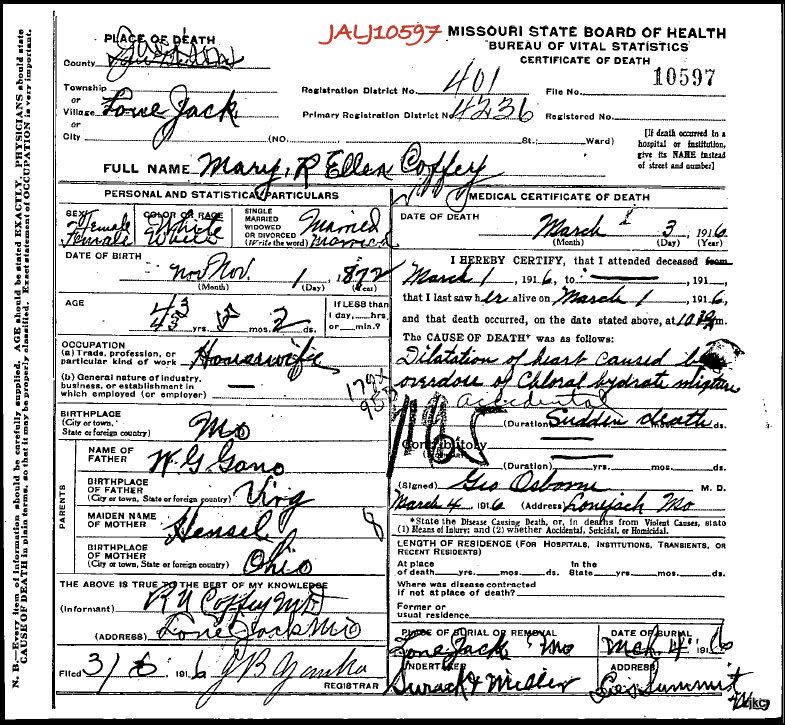 JALJ10597
MISSOURI STATE BOARD OF HEALTH
BUREAU OF VITAL STATISTICS
CERTIFICATE OF DEATH
PLACE OF DEATH
County Jackson
Township
or
Village Lone Jack
or
City (NO. St.; Ward)
Registration District No. 401 File No. 10597
Primary Registration District No. 4236 Registered No.
[If death occurred in a
hospital or institution,
give its NAME instead
of street and number]
FULL NAME Mary, R Ellen Coffey
PERSONAL AND STATISTICAL PARTICULARS
SEX Female Female
COLOR OR RACE White White
SINGLE
MARRIED
WIDOWED
OR DIVORCED
(Write the word) Married Married
DATE OF BIRTH
Nov Nov. 1, 1872
(Month) (Day) (Year)
AGE
43
43 yrs. 5 mos. 2 ds.
If LESS than
1 day, hrs.
or min.?
OCCUPATION
(a) Trade, profession, or
particular kind of work Housewife
(b) General nature of industry,
business, or establishment in
which employed (or employer) —
BIRTHPLACE
(City or town,
State or foreign country) Mo
PARENTS
NAME OF
FATHER W G Gano
BIRTHPLACE
OF FATHER
(City or town, State or foreign country) Virg
MAIDEN NAME
OF MOTHER Hensel 8
BIRTHPLACE
OF MOTHER
(City or town, State or foreign country) Ohio
THE ABOVE IS TRUE TO THE BEST OF MY KNOWLEDGE
(Informant) Coffey MD
(ADDRESS) Lone Jack Mo
Filed 3/6 1916 J B
REGISTRAR
MEDICAL CERTIFICATE OF DEATH
DATE OF DEATH
March 3, 1916
(Month) (Day) (Year)
I HEREBY CERTIFY, that I attended deceased from
March 1, 1916, to —, 191
that I last saw her alive on March 1, 1916,
and that death occurred, on the date stated above, at m.
The CAUSE OF DEATH* was as follows:
Dilatation of heart caused by
overdose of Chloral hydrate mixture
accidental
(Duration) Sudden death ds.
Contributory
(Duration) yrs. mos. ds.
(Signed) Geo Osborne M. D.
March 4 1916 (Address) Lonejack Mo
*State the Disease Causing Death, or, in deaths from Violent Causes, state
(1) Means of Injury; and (2) whether Accidental, Suicidal, or Homicidal.
LENGTH OF RESIDENCE (For Hospitals, Institutions, Transients, or
Recent Residents)
At place
of death yrs. mos. ds.
In the
State yrs. mos. ds.
Where was disease contracted
if not at place of death?
Former or
usual residence
PLACE OF BURIAL OR REMOVAL
Lone Jack Mo
DATE OF BURIAL
Mch. 4 1916
UNDERTAKER
& Miller
ADDRESS
Lees Summit
N. B.—Every item of information should be carefully supplied. AGE should be stated EXACTLY. PHYSICIANS should state
CAUSE OF DEATH in plain terms, so that it may be properly classified. Exact statement of OCCUPATION is very important.